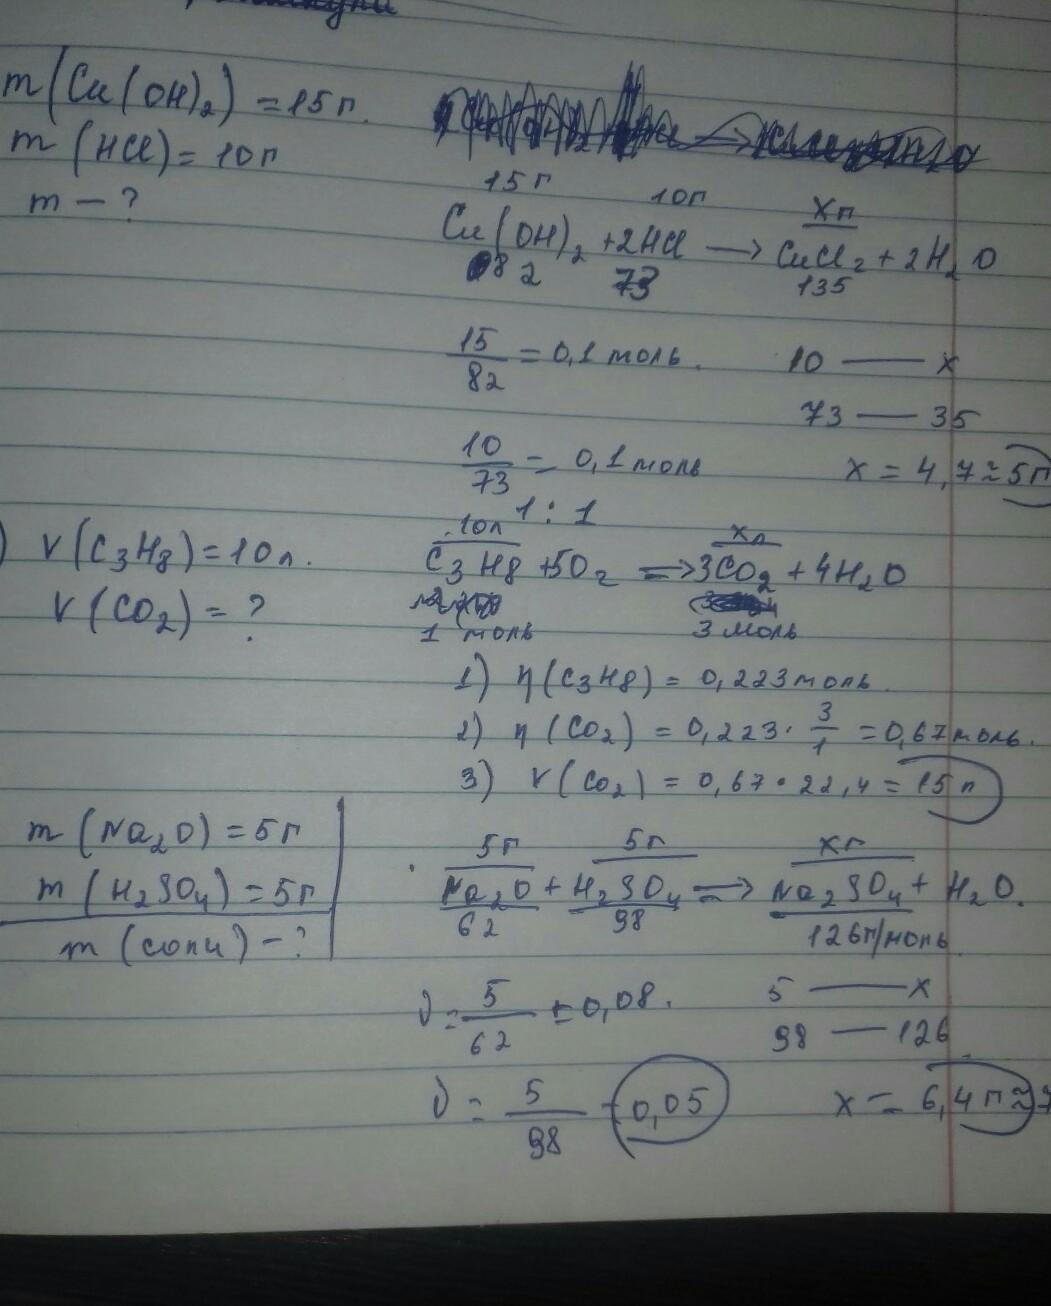 m(Cu(OH)₂) = 15г.
m(HCl) = 10г
m – ?
15г 10г xг
Cu(OH)₂ + 2HCl → CuCl₂ + 2H₂O
82 73 135
15/82 = 0,1 моль. 10 — x
73 — 35
10/73 = 0,1 моль x = 4,7 ≈ 5г
1 : 1
10л xл
) V(C₃H₈) = 10л. C₃H8 + 5O₂ ⇒ 3CO₂ + 4H₂O
V(CO₂) = ? 1 моль 3 моль
1) η(C₃H8) = 0,223 моль.
2) η(CO₂) = 0,223 · 3/1 = 0,67 моль.
3) V(CO₂) = 0,67 · 22,4 = 15л
m(Na₂O) = 5г 5г 5г xг
m(H₂SO₄) = 5г Na₂O + H₂SO₄ ⇒ Na₂SO₄ + H₂O.
m(соли) – ? 62 98 126г/моль
ν = 5/62 = 0,08. 5 — x
98 — 126
ν = 5/98 = 0,05 x = 6,4г ≈ 7